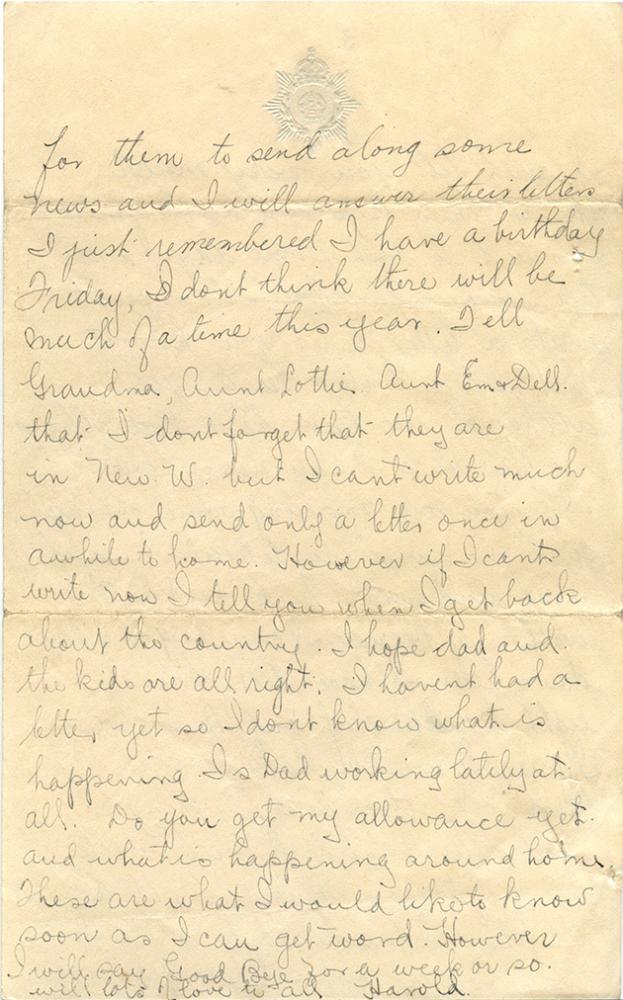 for them to send along some
news and I will answer their letters
I just remembered I have a birthday
Friday, I dont think there will be
much of a time this year. Tell
Grandma, Aunt Lottie. Aunt Em & Dell.
that I dont forget that they are
in New W. but I cant write much
now and send only a letter once in
awhile to home. However if I cant
write now I tell you when I get back
about the country. I hope dad and
the kids are all right. I havent had a
letter yet so I dont know what is
happening Is Dad working lately at
all. Do you get my allowance yet.
and what is happening around home.
These are what I would like to know
soon as I can get word. However
I will say Good Bye for a week or so.
will lots of love to all Harold.